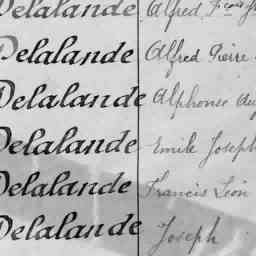 Delalande Alfred Fçois
Delalande Alfred Pierre
Delalande Alphonse Aug
Delalande Emile Joseph
Delalande Francis Léon
Delalande Joseph